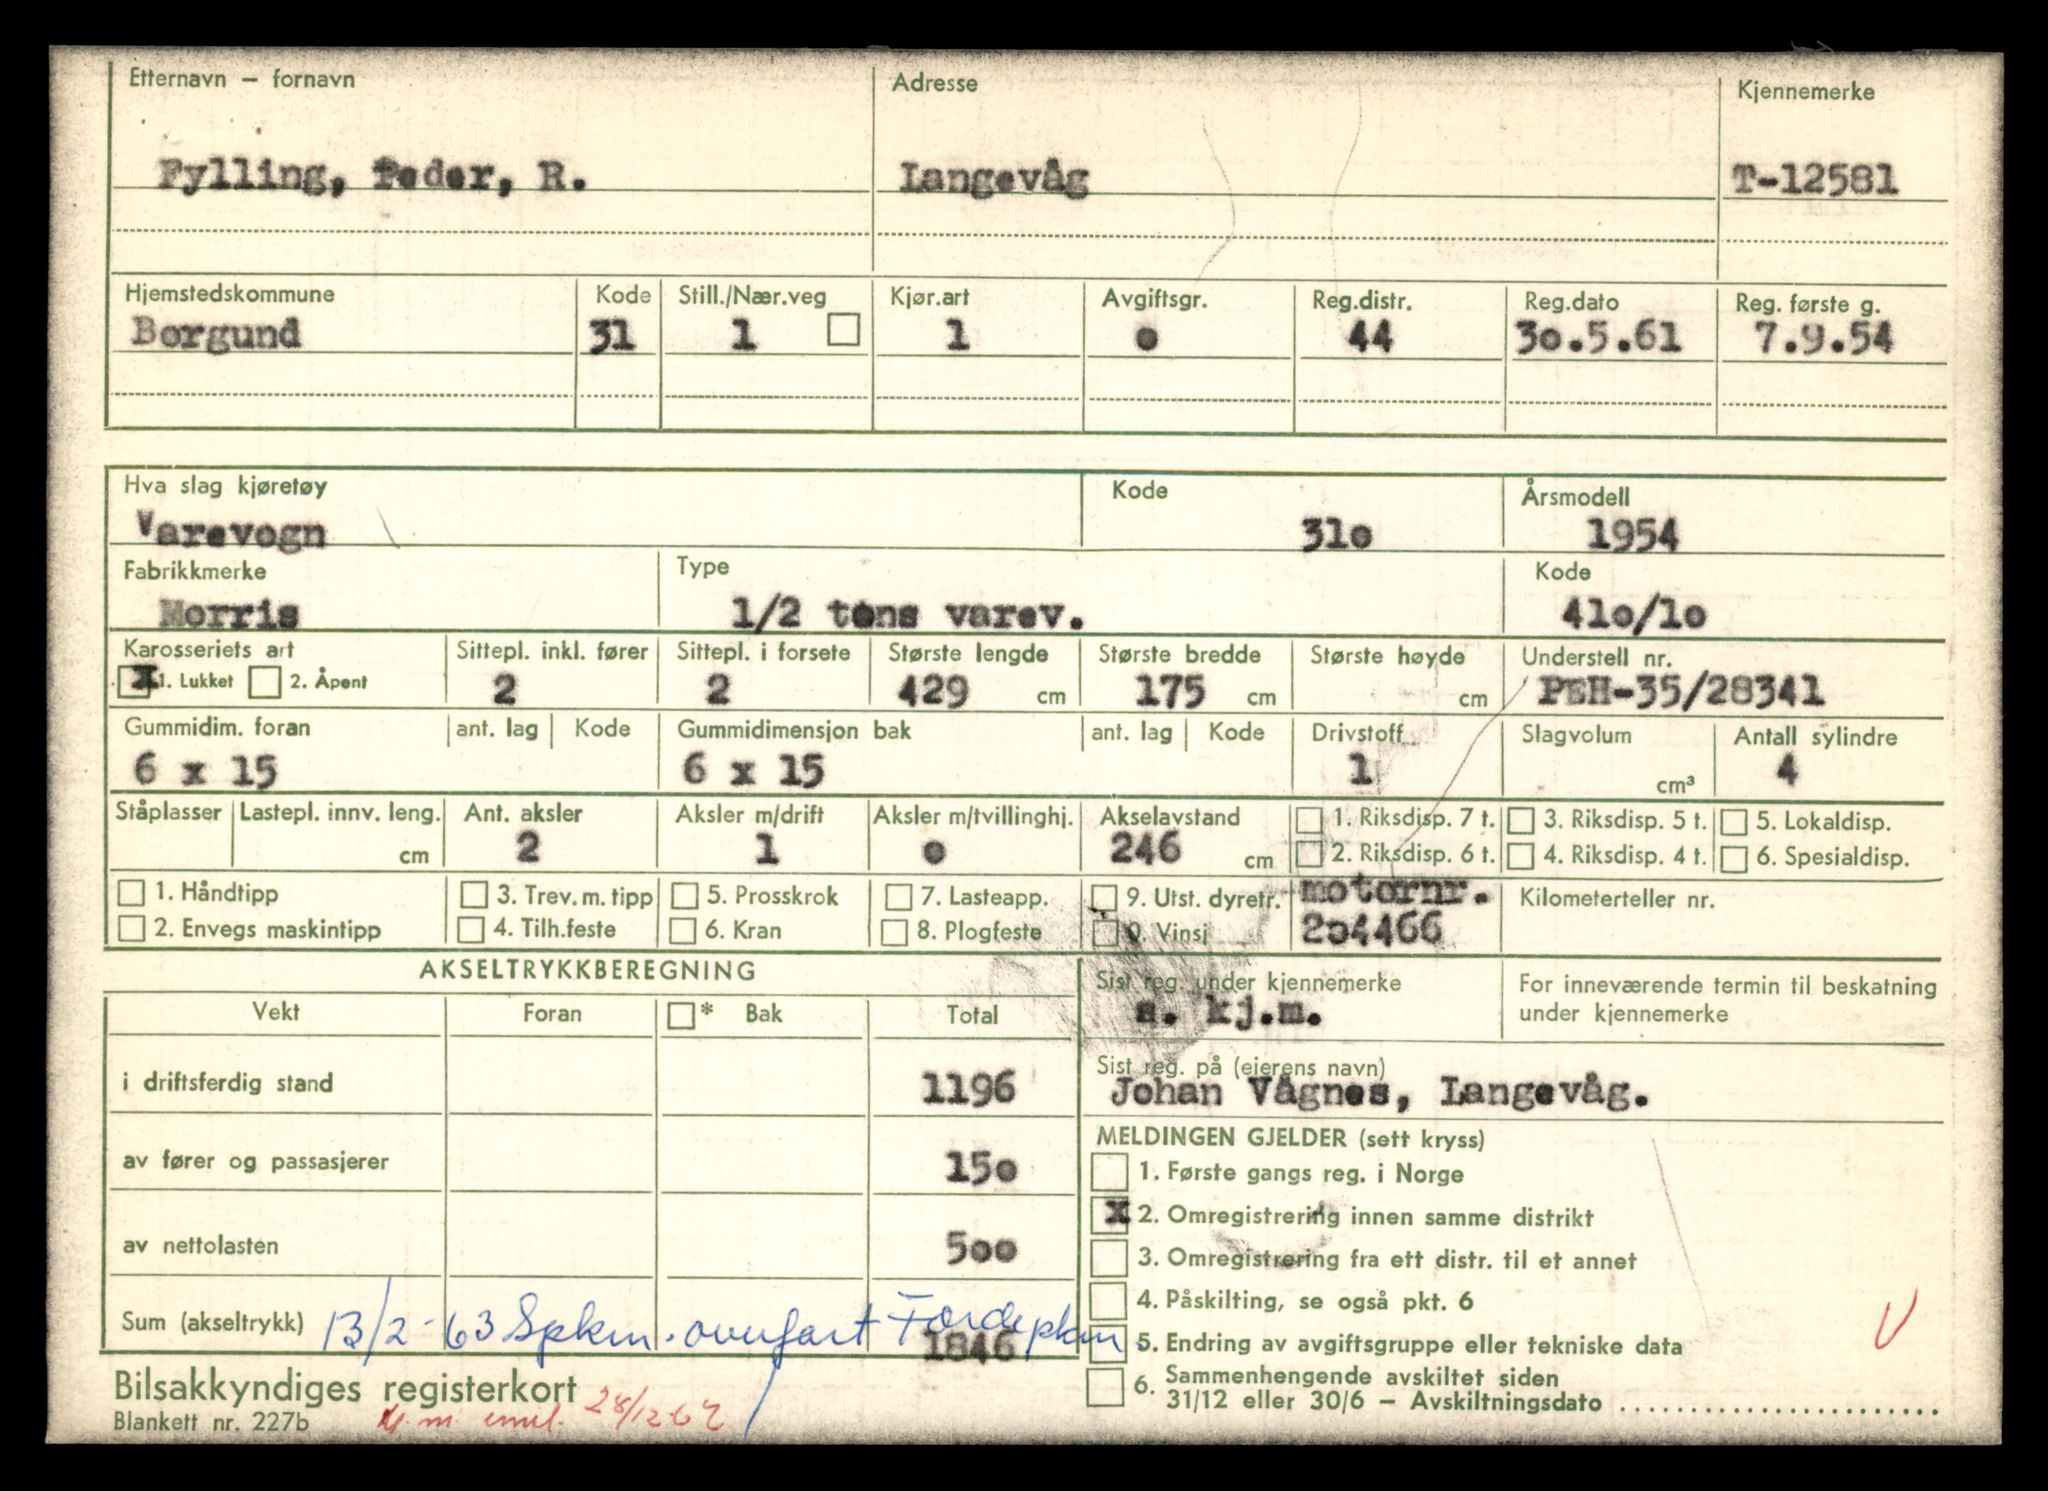 Etternavn – fornavn Adresse Kjennemerke
Fylling, Peder, R. Langevåg T-12581
Hjemstedskommune Kode Still./Nær.veg Kjør.art Avgiftsgr. Reg.distr. Reg.dato Reg. første g.
Borgund 31 1 1 o 44 3o.5.61 7.9.54
Hva slag kjøretøy Kode Årsmodell
Varevogn 31o 1954
Fabrikkmerke Type Kode
Morris 1/2 tons varev. 41o/1o
Karosseriets art Sittepl. inkl. fører Sittepl. i forsete Største lengde Største bredde Største høyde Understell nr.
x 1. Lukket 2. Åpent 2 2 429 cm 175 cm cm PEH-35/28341
Gummidim. foran ant. lag Kode Gummidimensjon bak ant. lag Kode Drivstoff Slagvolum Antall sylindre
6 x 15 6 x 15 1 cm³ 4
Ståplasser Lastepl. innv. leng. Ant. aksler Aksler m/drift Aksler m/tvillinghj. Akselavstand 1. Riksdisp. 7 t. 3. Riksdisp. 5 t. 5. Lokaldisp.
cm 2 1 o 246 cm 2. Riksdisp. 6 t. 4. Riksdisp. 4 t. 6. Spesialdisp.
1. Håndtipp 3. Trev. m. tipp 5. Prosskrok 7. Lasteapp. 9. Utst. dyretr. motornr. Kilometerteller nr.
2. Envegs maskintipp 4. Tilh.feste 6. Kran 8. Plogfeste 0. Vinsj 2o4466
AKSELTRYKKBEREGNING
Vekt Foran * Bak Total
i driftsferdig stand 1196
av fører og passasjerer 15o
av nettolasten 5oo
Sum (akseltrykk) 13/2-63 Spkm. overført Førdepkm
1846
Sist reg. under kjennemerke For inneværende termin til beskatning
under kjennemerke
s. kj.m.
Sist reg. på (eierens navn)
Johan Vågnes, Langevåg.
MELDINGEN GJELDER (sett kryss)
1. Første gangs reg. i Norge
x 2. Omregistrering innen samme distrikt
3. Omregistrering fra ett distr. til et annet
4. Påskilting, se også pkt. 6
5. Endring av avgiftsgruppe eller tekniske data
6. Sammenhengende avskiltet siden
31/12 eller 30/6 – Avskiltningsdato
Bilsakkyndiges registerkort
Blankett nr. 227b 28/12-62